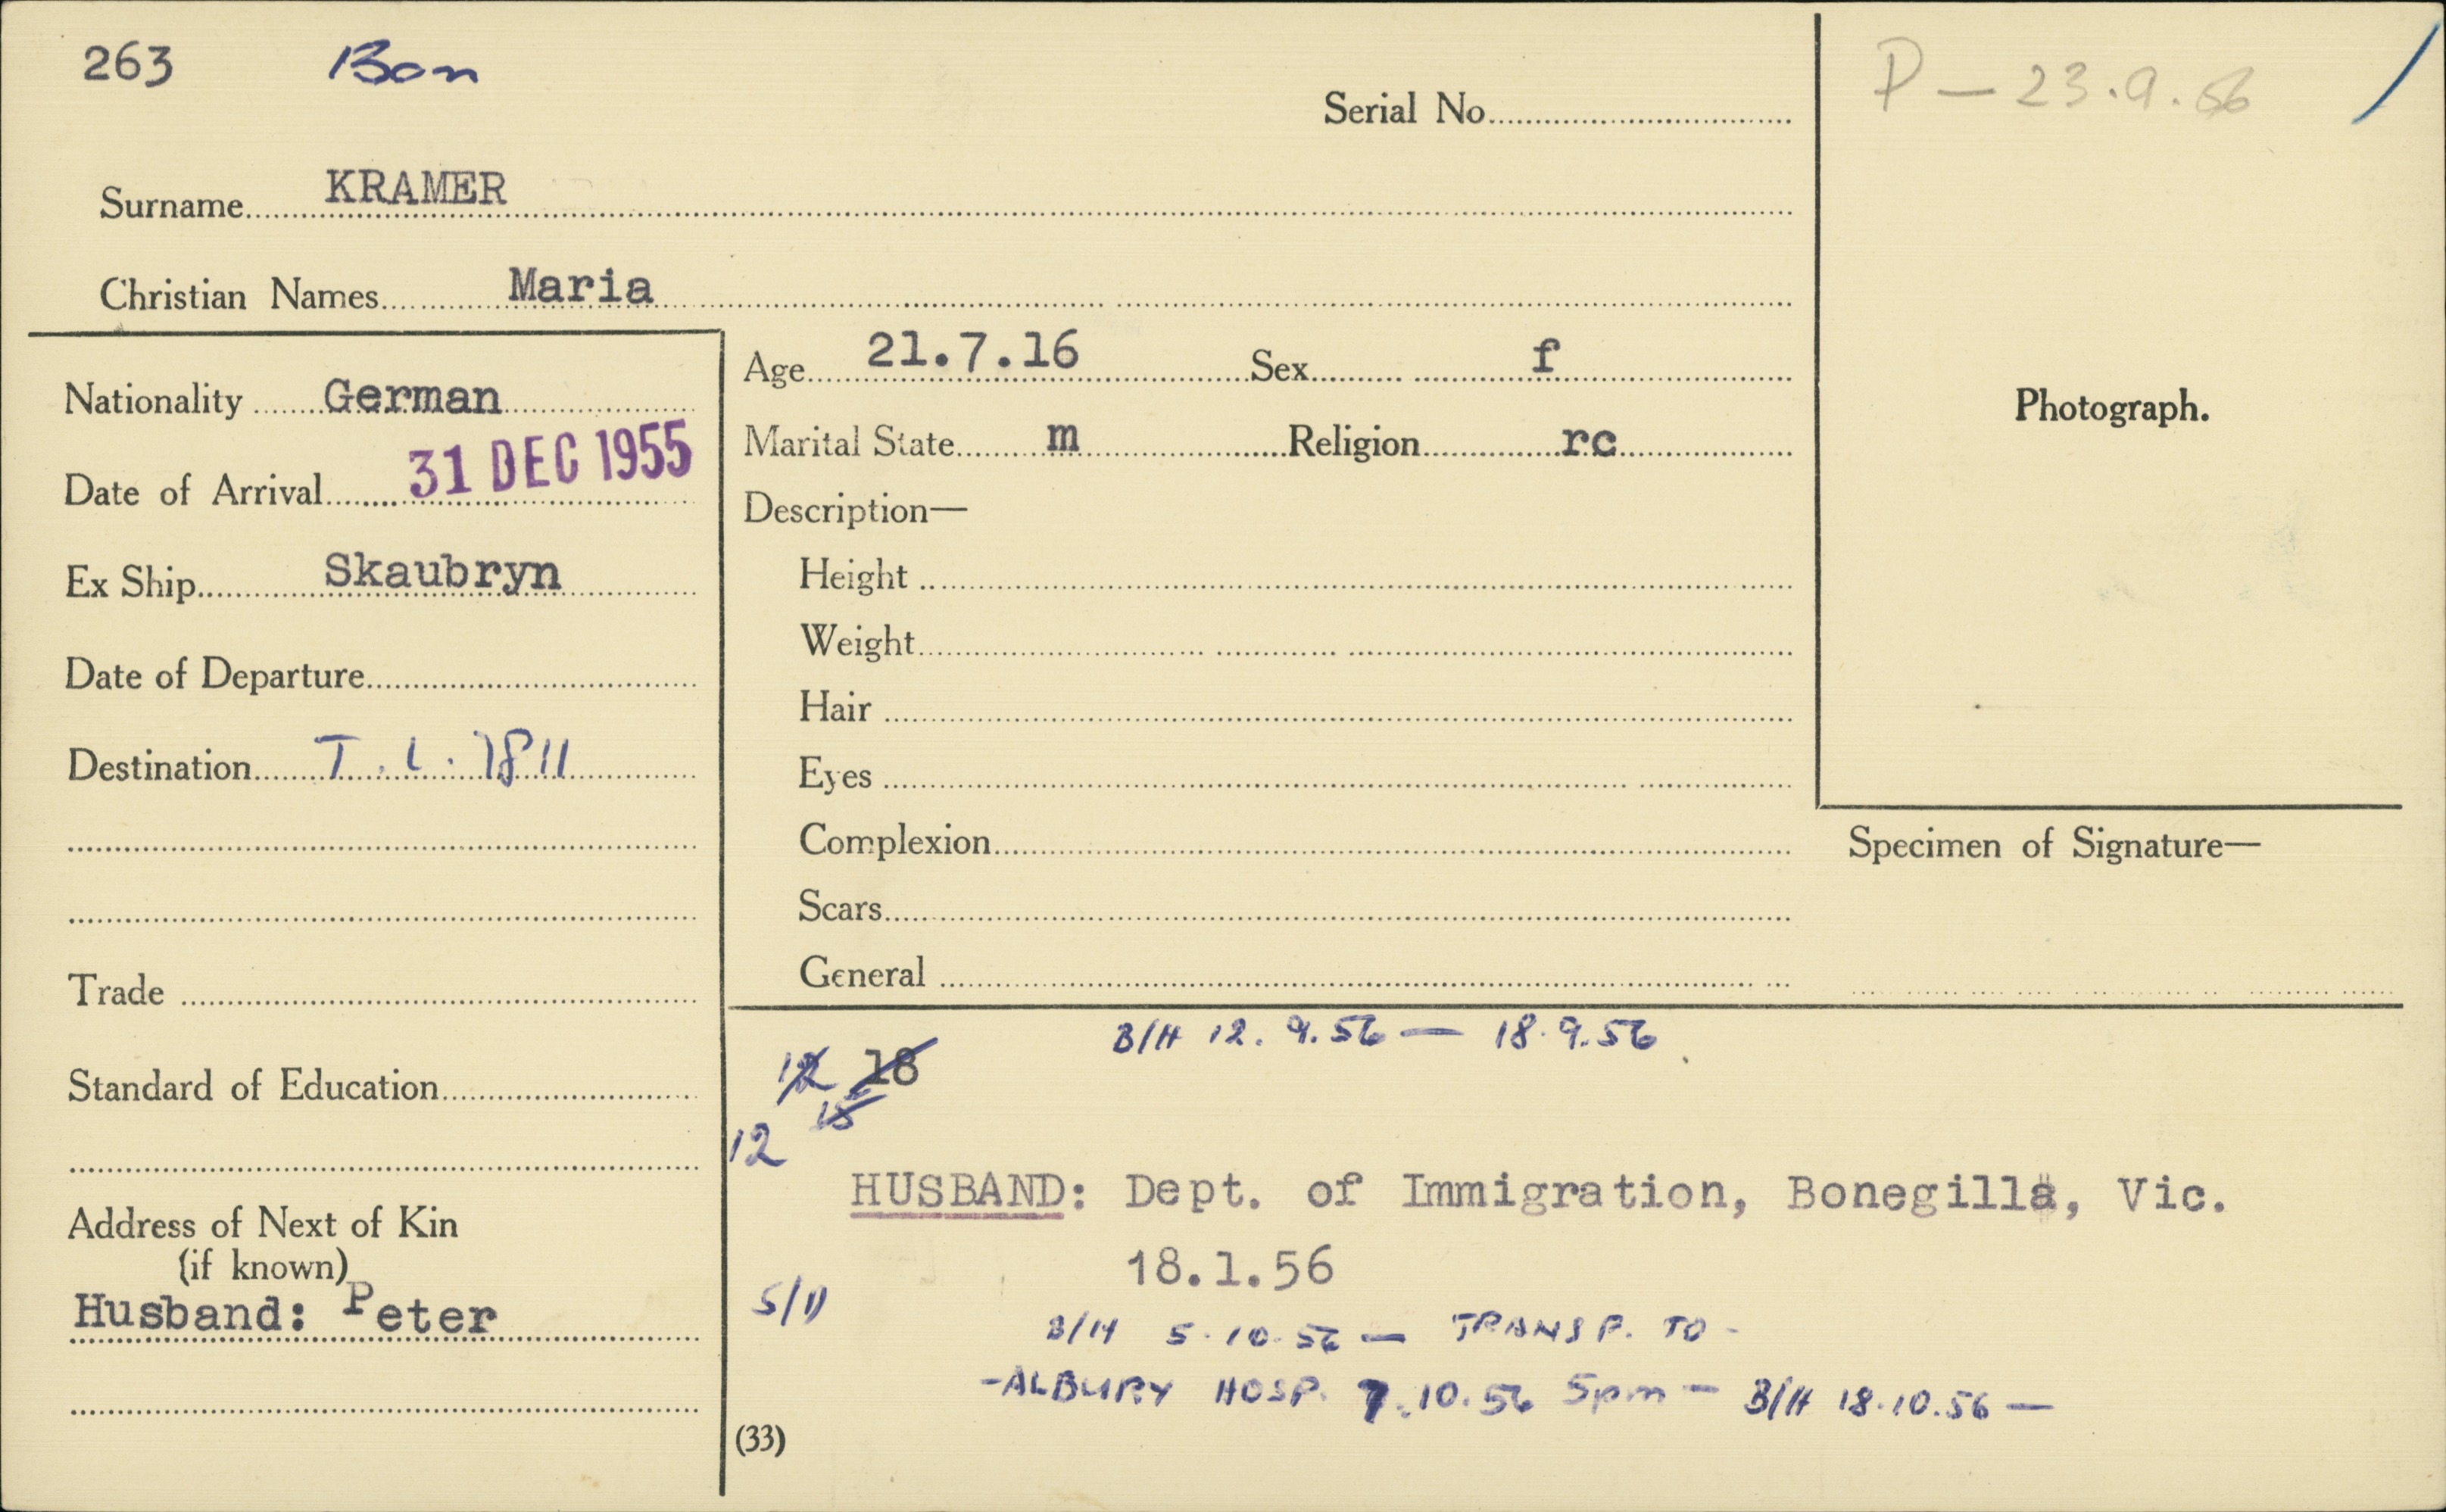 263 Bon
P - 23.9.56
Serial No.
Surname KRAMER
Christian Names Maria
Nationality German
Date of Arrival 31 DEC 1955
Ex Ship Skaubryn
Date of Departure
Destination T.L. 7811
Trade
Standard of Education
Address of Next of Kin
(if known)
Husband: Peter
Age 21.7.16 Sex f
Marital State m Religion rc
Description—
Height
Weight
Hair
Eyes
Complexion
Scars
General
Photograph.
Specimen of Signature—
B/H 12.9.56 — 18.9.56
12 18
15
12
HUSBAND: Dept. of Immigration, Bonegilla, Vic.
18.1.56
B/H 5.10.56 — TRANSP. TO -
-ALBURY HOSP. 7.10.56 5pm — B/H 18.10.56 —
(33)